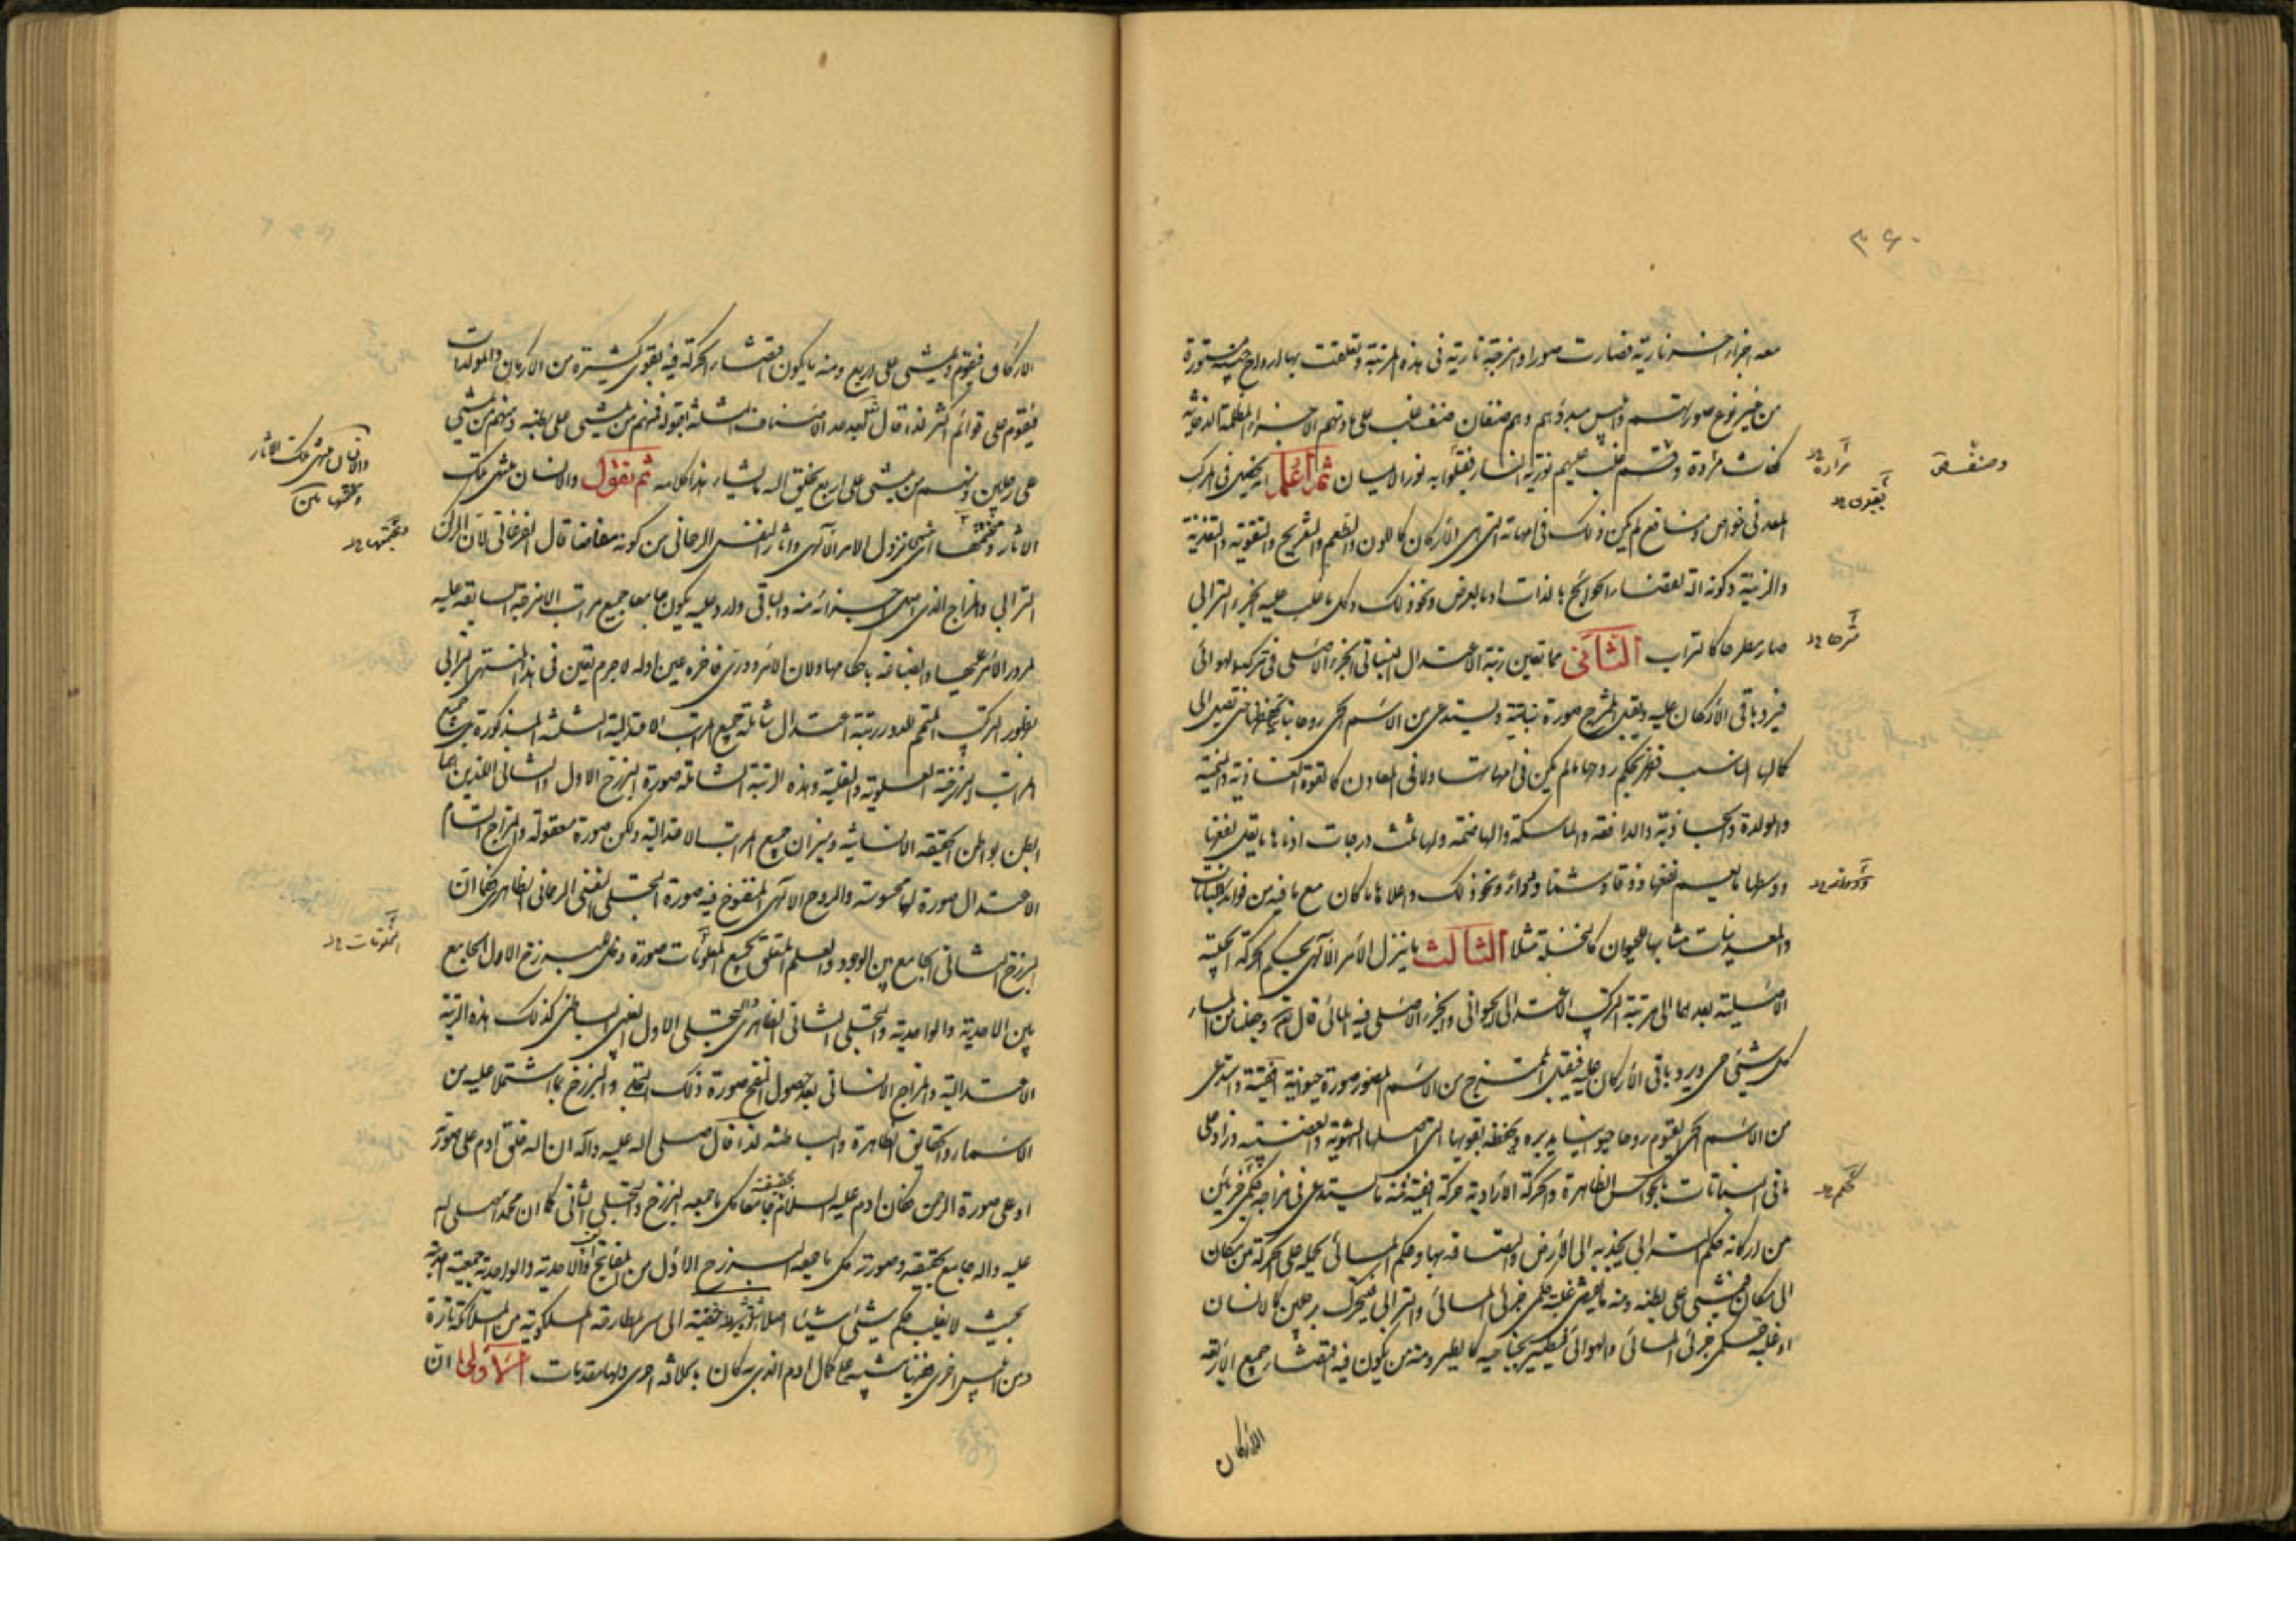 ٣٦٠
معه اجزاء اخر نارية فصارت صورا وامزجة نارية فى هذه المرتبة وتعلقت بها ارواح خبيثة مستورة
من غير نوع صورتهم وابليس مبدؤهم وهم صنفان صنف غلب على مادتهم الاجزاء المظلمة الدخانية
فكانت مرادة وقسم غلب عليهم نورية النار فقبلوا به نور الايمان ثم اعلم انه يختص فى المركب
المعدنى خواص ومنافع لم يكن ذلك فى امهاته التى هى الأركان كاللون والطعم والتفريح والتقوية والتغذية
والزينة وكونه آلة لقضاء الحوائج بالذات او بالعرض ونحو ذلك وكل ما غلب عليه الجزء الترابى
صار مطرحا كالتراب الثانى مما تعين رتبة الاعتدال النباتى الجزء الأصلى فى تركيبه الهوائى
فيرد باقى الأركان عليه ويقبل المزج صورة نباتية ويستدعى من الاسم الحى روحا نباتيا يحفظها حتى تصل الى
كمالها المناسب فظهر بحكم روحها ما لم يكن فى امهاتها ولا فى المعادن كالقوة الغاذية والمنمية
والمولدة والجاذبة والدافعة والماسكة والهاضمة ولها ثلث درجات ادناها ما يقل نفعها
ووسطها ما يعم نفعها ذوقا وشما ودواء ونحو ذلك واعلاها ما كان مع ما فيه من فوائد النباتات
والمعدنيات مشابها للحيوان كالنخلة مثلا الثالث ما ينزل الأمر الآلهى بحكم الحركة الحبية
الأصلية بعدهما الى مرتبة المركب الاعتدالى الحيوانى والجزء الأصلى فيه المائى قال تعالى وجعلنا من الماء
كل شيئ حى ويرد باقى الأركان عليه فيقبل الممتزج من الاسم المصور صورة حيوانية واستدعى
من الاسم الحى القيوم روحا حيوانيا يدبره ويحفظه بقويها التى اصلها الشهوية والغضبية وزاد على
ما فى النباتات بالحواس الظاهرة والحركة الارادية فمنه ما يستدعى فى مزاجه حكم جزئين
من اركانه حكم الترابى يجذبه الى الأرض والتصاقه بها وحكم المائى يحيله على الحركة من مكان
الى مكان فيمشى على بطنه ومنه ما يقتضى غلبة حكمى جزئى المائى والترابى فيتحرك برجلين كالانسان
او غلبة حكمى جزئى المائى والهوائى فيطير بجناحيه كالطير ومنه من يكون فيه اقتضاء جميع الأربعة
الأركان
وصنف
مرادة
يقبلون
مترحا
ودواء
حكم
الاركان فيقوم ويمشى على اربع ومنه ما يكون اقتضاء الحركة فيه بقوى كثيرة من الاركان والمولدات
فيقوم على قوائم اكثر فلذا قال تعالى بعد هذه الاصناف الثلثة بقوله فمنهم من يمشى على بطنه ومنهم من يمشى
على رجلين ومنهم من يمشى على اربع يخلق الله ما يشاء هذا كلامه ثم نقول والانسان منتهى تلك
الآثار ومجتمعها اى منتهى نزول الامر الآلهى وآثار النفس الرحمانى من كونه مفاضا قال الفرغانى لأن الركن
الترابى والمزاج الذى اصل اجزائه منه والباقى وارد عليه يكون جامعا جميع مراتب الامزجة السابقة عليه
لمرور الأمر عليها وانصباغه باحكامها ولان الأمر دورى فاخره عين اوله لا جرم تعين فى هذا المنتهى الترابى
لظهور المركب المتمم للدور رتبة اعتدال شاملة جميع المراتب الاعتدالية الثلثة المذكورة بل جميع
المراتب البرزخية العلوية والسفلية وهذه الرتبة الشاملة صورة البرزخ الاول والثانى اللذين هما
ابطن بواطن الحقيقة الانسانية وميزان جميع المراتب الاعتدالية ولكن صورة معقولة والمزاج التام
الاعتدال صورة لها محسوسة والروح الآلهى المنفوخ فيه صورة التجلى النفسى الرحمانى الظاهرى فكما ان
البرزخ الثانى الجامع بين الوجود والعلم المتعلق بجميع المعلومات صورة وظل للبرزخ الاول الجامع
بين الاحدية والواحدية والتجلى الثانى الظاهرى للتجلى الاول النفسى الباطنى كذلك هذه الرتبة
الاعتدالية والمزاج الانسانى بعد حصول النفخ صورة ذلك التجلى والبرزخ بما اشتملا عليه من
الاسماء والحقايق الظاهرة والباطنة لذا قال صلى الله عليه وآله ان الله خلق ادم على صورته
او على صورة الرحمن فكان ادم عليه السلام بحقيقته جامعا كل ما جمعه البرزخ والتجلى الثانى كما ان محمدا صلى الله
عليه وآله جامع بحقيقته وصورته كل ما جمعه البرزخ الاول من المفاتيح والاحدية والواحدية جمعية احدية
بحيث لا يغلب حكم شيئ شيئا اصلا
الى سر المطارحة الملكوتية من الملائكة تارة
ومن ابليس اخرى
على كمال ادم الذى به كان
ولها مقدمات الاولى ان
والانسان منتهى تلك الآثار
ومجتمعها
المعلومات